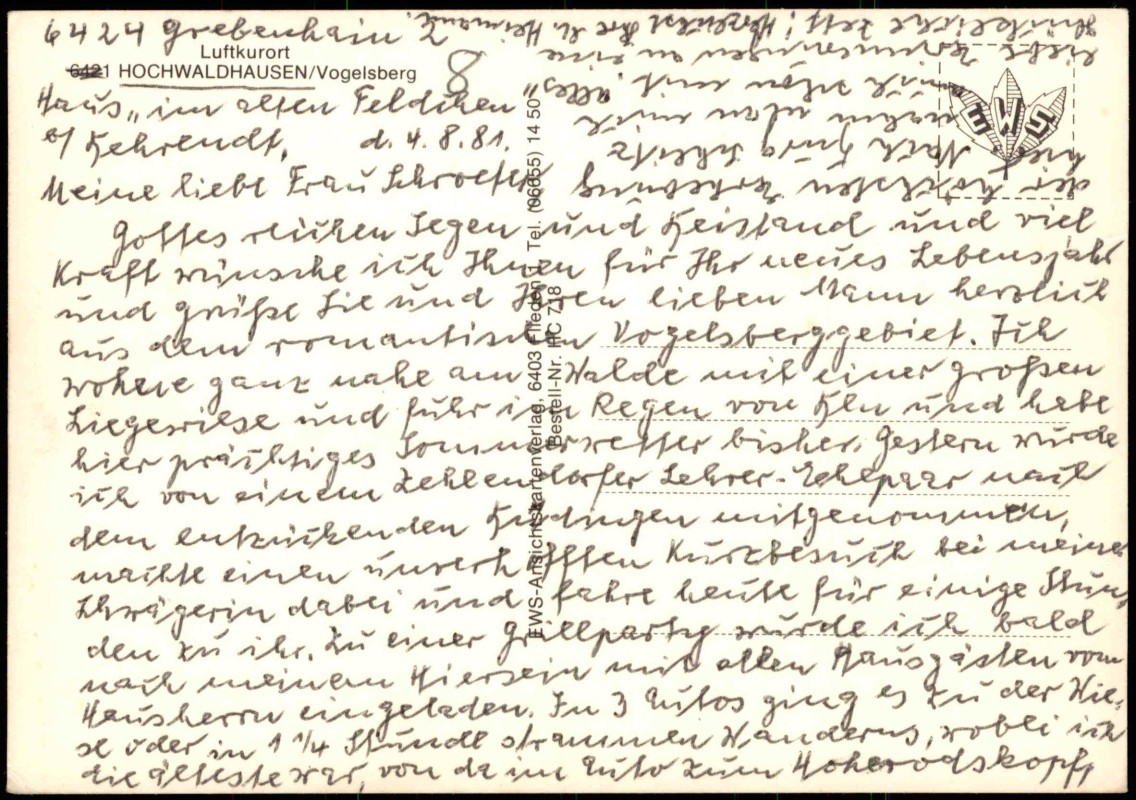 6424 Grebenhain 2
Luftkurort
6421 HOCHWALDHAUSEN/Vogelsberg
8
Haus „im alten Feldchen"
b/ Behrendt, d. 4.8.81.
Meine liebe Frau Schroeter
Gottes reichen Segen und Beistand und viel
Kraft wünsche ich Ihnen für Ihr neues Lebensjahr
und grüße Sie und Ihren lieben Mann herzlich
aus dem romantischen Vogelsberggebiet. Ich
wohne ganz nahe am Walde mit einer großen
Liegewiese und fuhr im Regen von Bln und habe
hier prächtiges Sommerwetter bisher. Gestern wurde
ich von einem Zehlendorfer Lehrer-Ehepaar nach
dem entzückenden Büdingen mitgenommen,
machte einen unverhofften Kurzbesuch bei meiner
Schwägerin dabei und fahre heute für einige Stun-
den zu ihr. Zu einer Grillparty wurde ich bald
nach meinem Hiersein mit allen Hausgästen vom
Hausherrn eingeladen. In 3 Autos ging es zu der Wie-
se oder in 1 1/4 Stunde strammen Wanderns, wobei ich
die älteste war, von da im Auto zum Hoherodskopf,
der höchsten Erhebung
hier. Nach Burg Schlitz
nahm man mich
auch schon mit. „Alles"
liebe Erinnerungen an eine
glückliche Zeit! Herzlichst Ihre
EWS-Ansichtskartenverlag, 6403 Flieden 1, Tel. (06655) 14 50
Bestell-Nr. HC 718
EWS